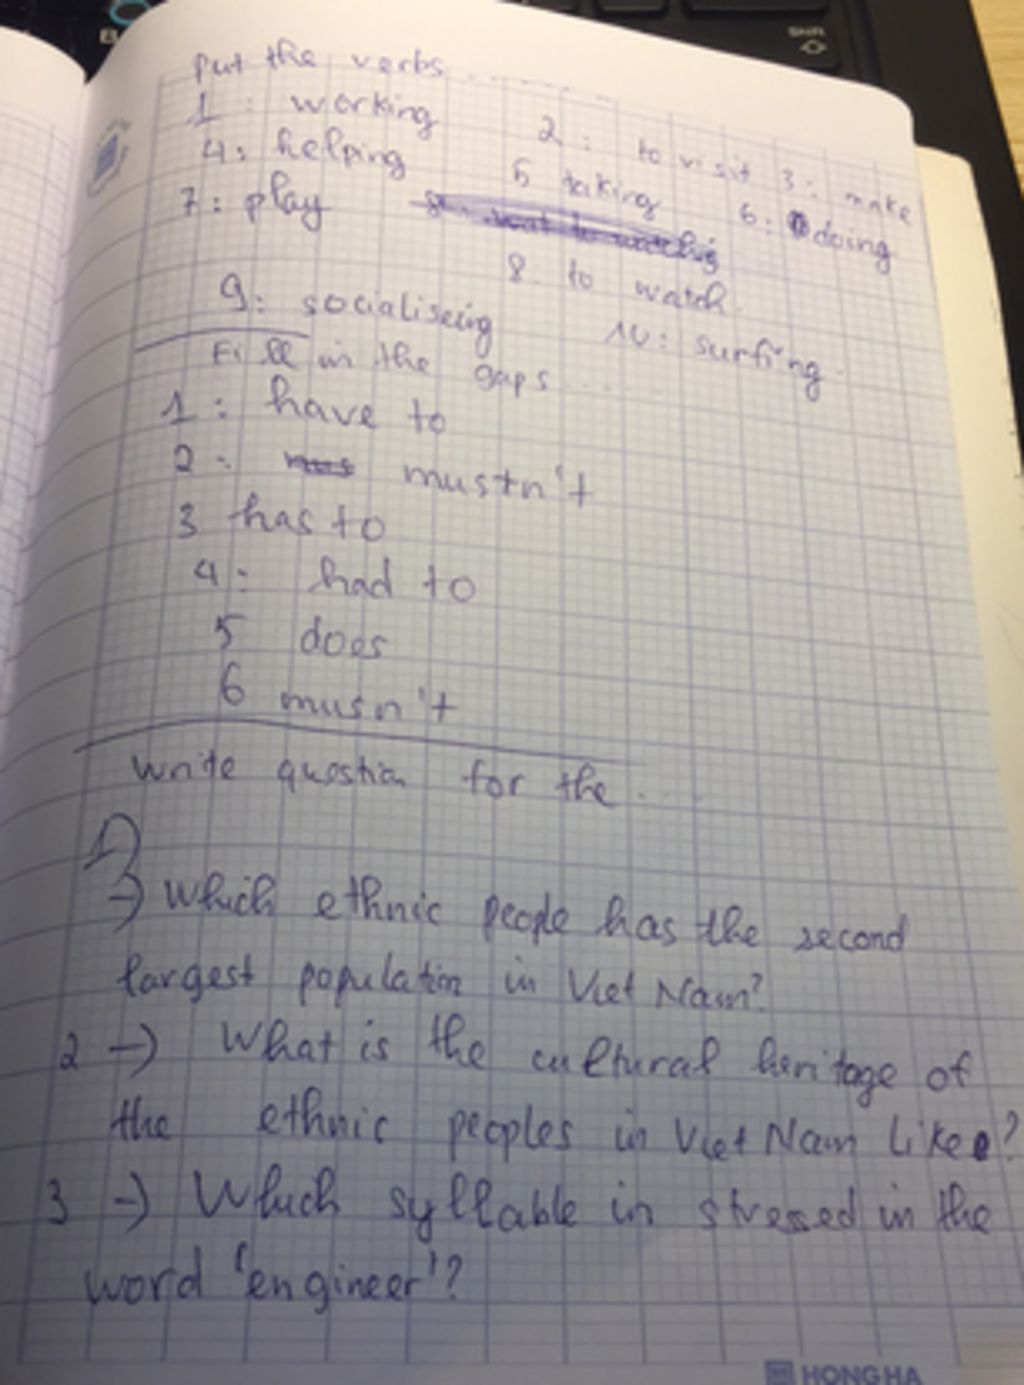 Put the verbs ..........
1 : working 2 : to visit 3 : make
4 : helping 5 taking 6 : doing
7 : play
8 . to watch.
9 : socialiseing 10 : surfing.
Fill in the gaps ......
1 : have to
2 : mustn't
3 has to
4 : had to
5 does
6 musn't
Write question for the ....
1)
→ Which ethnic people has the second
largest population in Viet Nam?
2 → What is the cultural heritage of
the ethnic peoples in Viet Nam like?
3 → Which syllable in stressed in the
word 'engineer'?
HONG HA